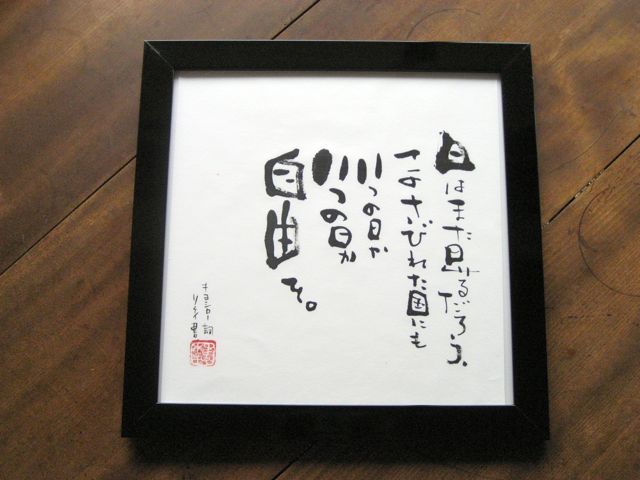 日はまた昇るだろう、
このさびれた国にも
いつの日か
いつの日か
自由を。
キヨシロー 詞
書